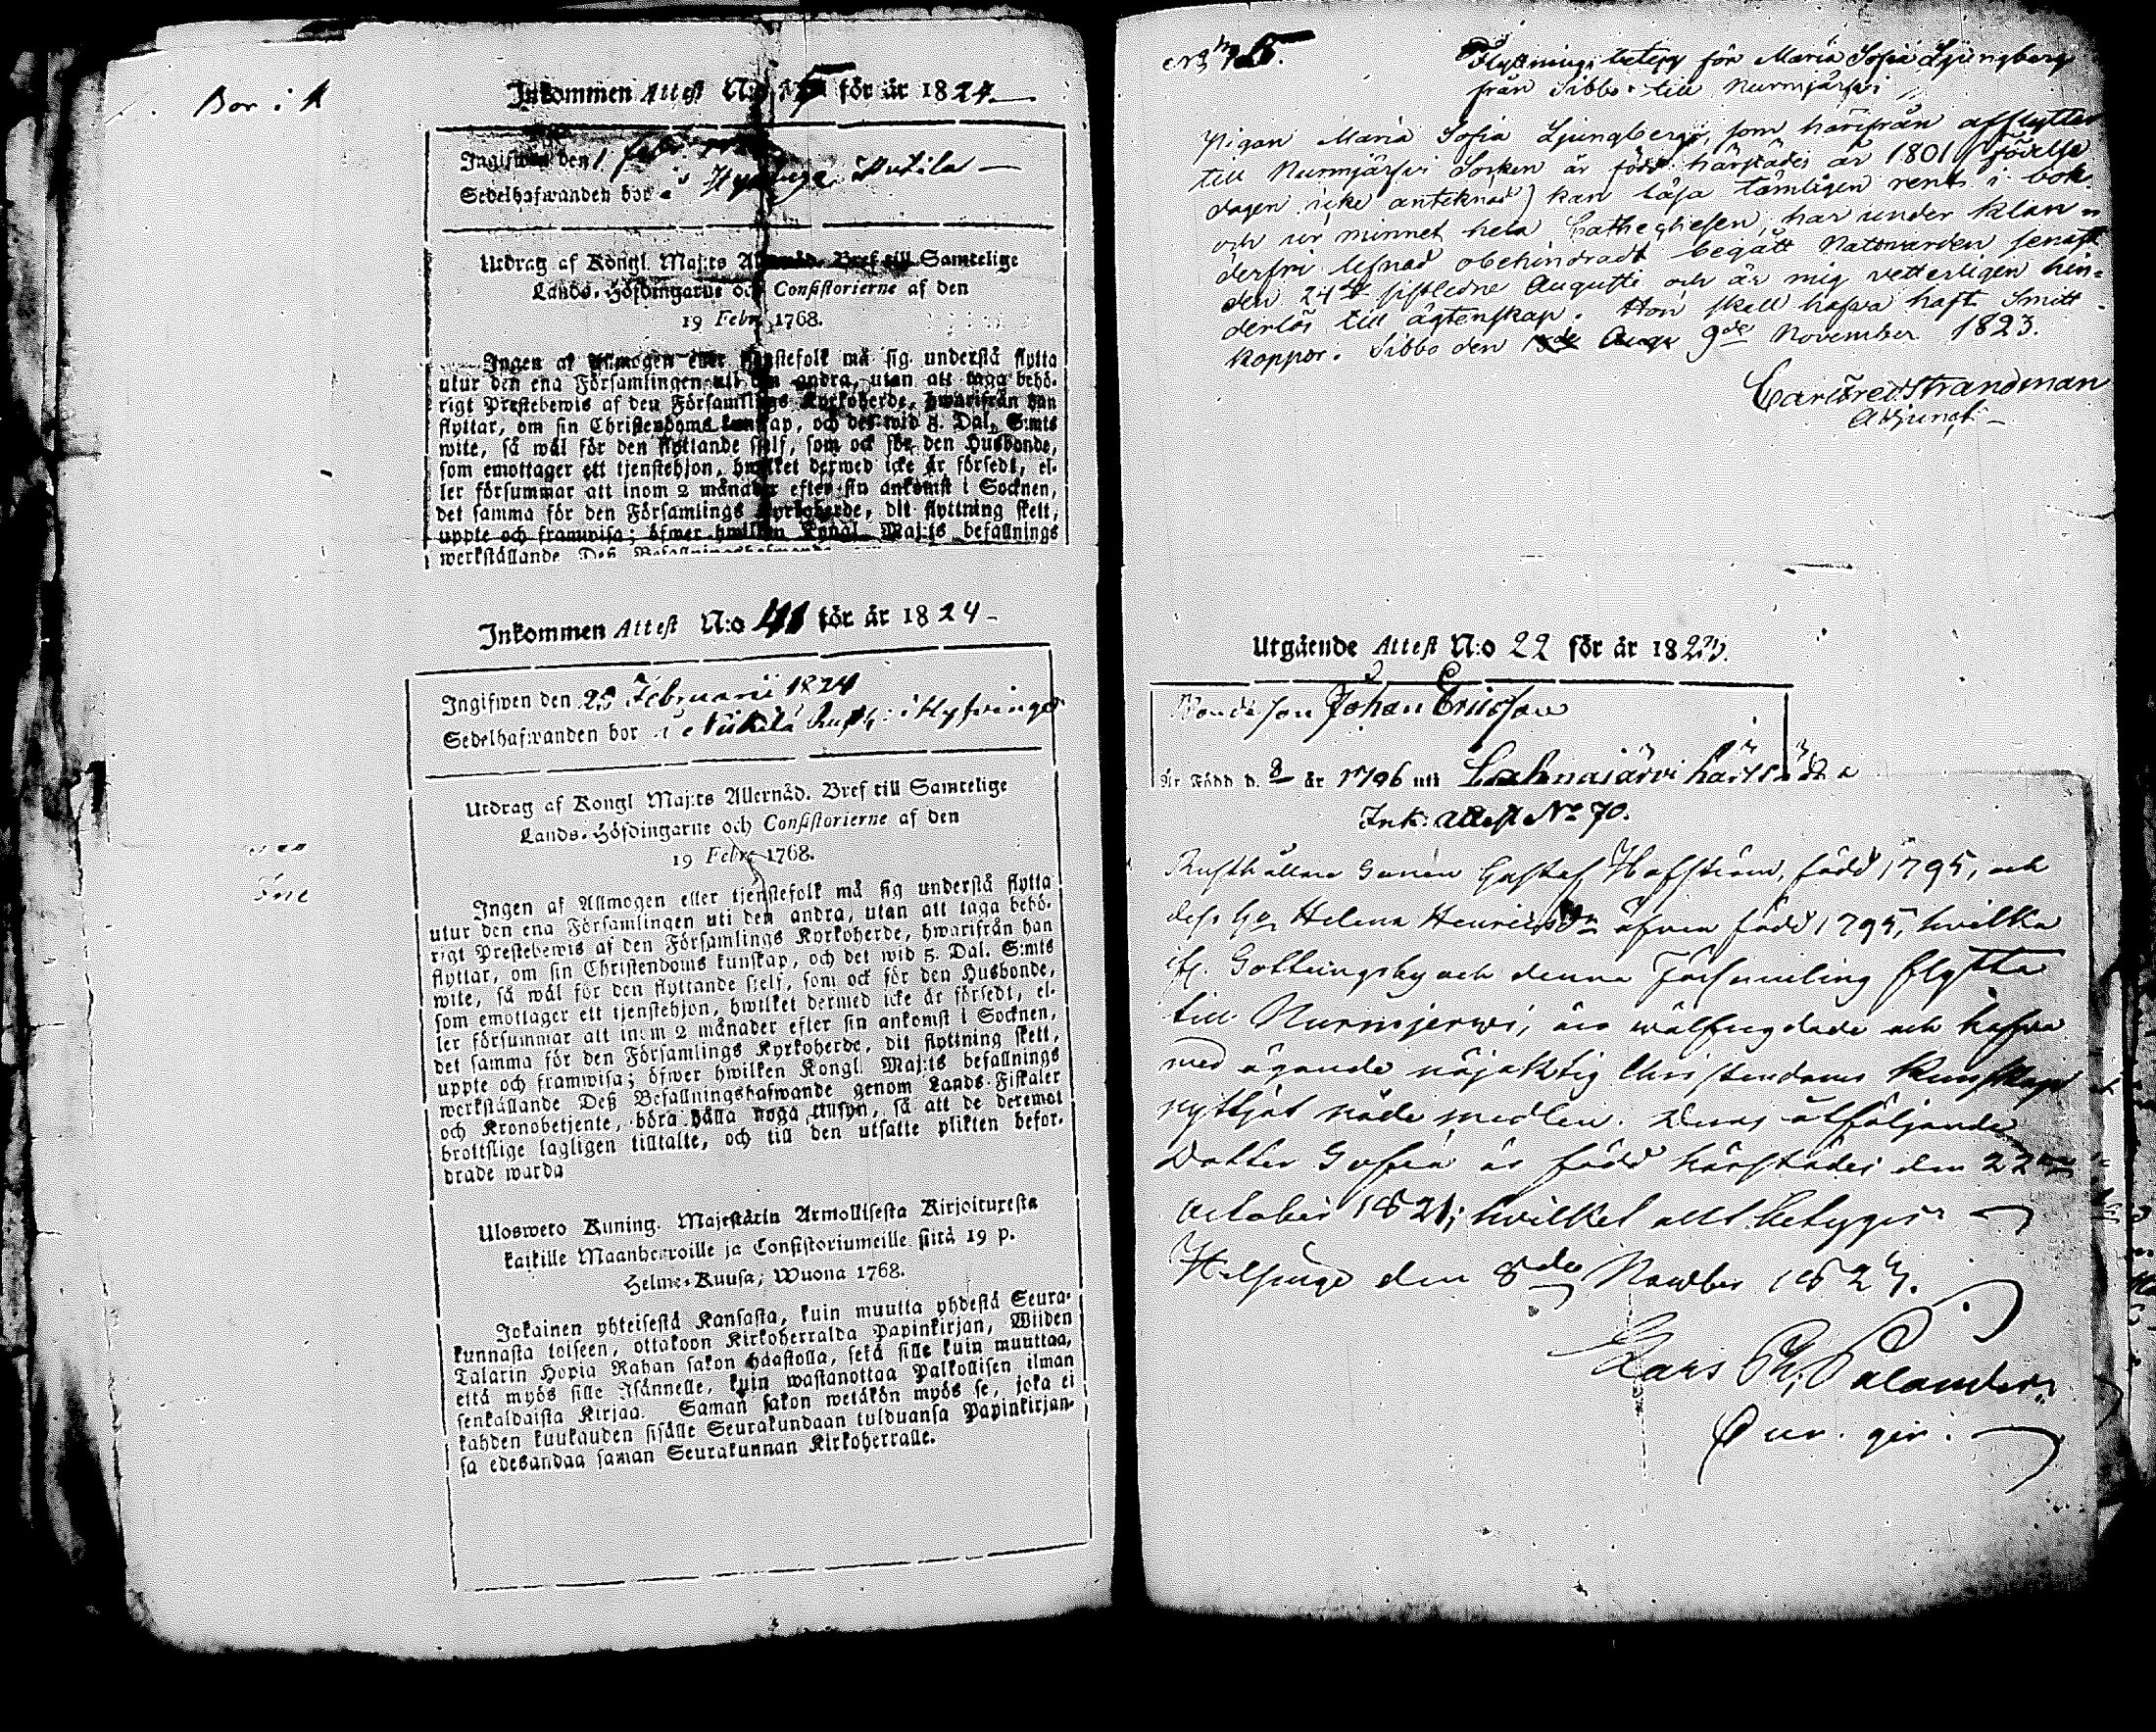 Bor i
Inkommen Attest N:o för år 1824
Ingifwen den 1
Sedelhafwanden bor
Utdrag af Kongl. Maj:ts Allernåd. Bref till Samtelige
Lands-Höfdingarne och Consistorierne af den
19 Febr. 1768.
Ingen af Allmogen eller tjenstefolk må sig understå flytta
utur den ena Församlingen uti den andra, utan att taga behö-
rigt Prestebewis af den Församlings Kyrkoherde, hwarifrån han
flyttar, om sin Christendoms kunskap, och det wid 5. Dal. S:mts
wite, så wäl för den flyttande sjelf, som ock för den Husbonde,
som emottager ett tjenstehjon, hwilket dermed icke är försedt, el-
ler försummar att inom 2 månader efter sin ankomst i Socknen,
det samma för den Församlings Kyrkoherde, dit flyttning skett,
uppte och framwisa; öfwer hwilken Kongl. Maj:ts befallnings
werkställande Deß Befallningshafwande
Inkommen Attest N:o 41 för år 1824
Ingifwen den 29 Februarii 1824
Sedelhafwanden bor i
Utdrag af Kongl Maj:ts Allernåd. Bref till Samtelige
Lands-Höfdingarne och Consistorierne af den
19 Febr. 1768.
Ingen af Allmogen eller tjenstefolk må sig understå flytta
utur den ena Församlingen uti den andra, utan att taga behö-
rigt Prestebewis af den Församlings Kyrkoherde, hwarifrån han
flyttar, om sin Christendoms kunskap, och det wid 5. Dal. S:mts
wite, så wäl för den flyttande sjelf, som ock för den Husbonde,
som emottager ett tjenstehjon, hwilket dermed icke är försedt, el-
ler försummar att inom 2 månader efter sin ankomst i Socknen,
det samma för den Församlings Kyrkoherde, dit flyttning skett,
uppte och framwisa; öfwer hwilken Kongl. Maj:ts befallnings
werkställande Deß Befallningshafwande genom Lands-Fiskaler
och Kronobetjente, böra hålla noga tillsyn, så att de deremot
brottslige lagligen tilltalte, och till den utsatte plikten befor-
drade warda
Ulosweto Kuning. Majestätin Armollisesta Kirjoituxesta
kaikille Maanherroille ja Consistoriumeille siitä 19 p.
Helme-Kuusa, Wuona 1768.
Jokainen yhteisestä Kansasta, kuin muutta yhdestä Seura-
kunnasta toiseen, ottakoon Kirkoherralda Papinkirjan, Wiiden
Talarin Hopia Rahan sakon haastolla, sekä sille kuin muuttaa,
että myös sille Isännelle, kuin wastanottaa Palkollisen ilman
senkaldaista Kirjaa. Saman sakon wetäkön myös se, joka ei
kahden kuukauden sisälle Seurakundaan tulduansa Papinkirjan-
sa edesandaa saman Seurakunnan Kirkoherralle.
Flyttnings betyg för Maria Sofia Ljungberg
från Sibbo till Nurmjärfvi
Pigan Maria Sofia Ljungberg, som härifrån afflyttar
till Nurmjärfvi Socken är född härstädes år 1801 (födelse
dagen icke anteknad) kan läsa tämligen rent i bok
och ur minnet hela Cathechesen, har under klan-
derfri lefnad obehindradt begått Nattvarden senast
den 24de sistledne Augusti och är mig vetterligen hin-
derlös till ägtenskap. Hon skall hafva haft Smitt-
koppor. Sibbo den 9de November 1823.
Carl Fred Strandman
Adjunct
Utgående Attest N:o 22 för år 1823.
Bonde son Johan Ericsson
Är Född d. 8 år 1796 uti Lahnajärvi härstädes
Ink: attest No 70.
Rusthållare Sonen Gustaf Hofström, född 1795, och
dess hu Helena Henricsdr äfven född 1795, hvilka
ifr. Gottingsby och denna Församling flytta
till Nurmijerwi, äro wälfregdade och hafva
med ägande nöjaktig Christendoms Kunskap
nyttjat nåde medlen. Deras åtföljande
Dotter Sofia är född härstädes den 22
October 1821; hvilket allt betygas
Helsinge den 8de Novembr 1823.
Lars Ph. Palander
Cur. ger.